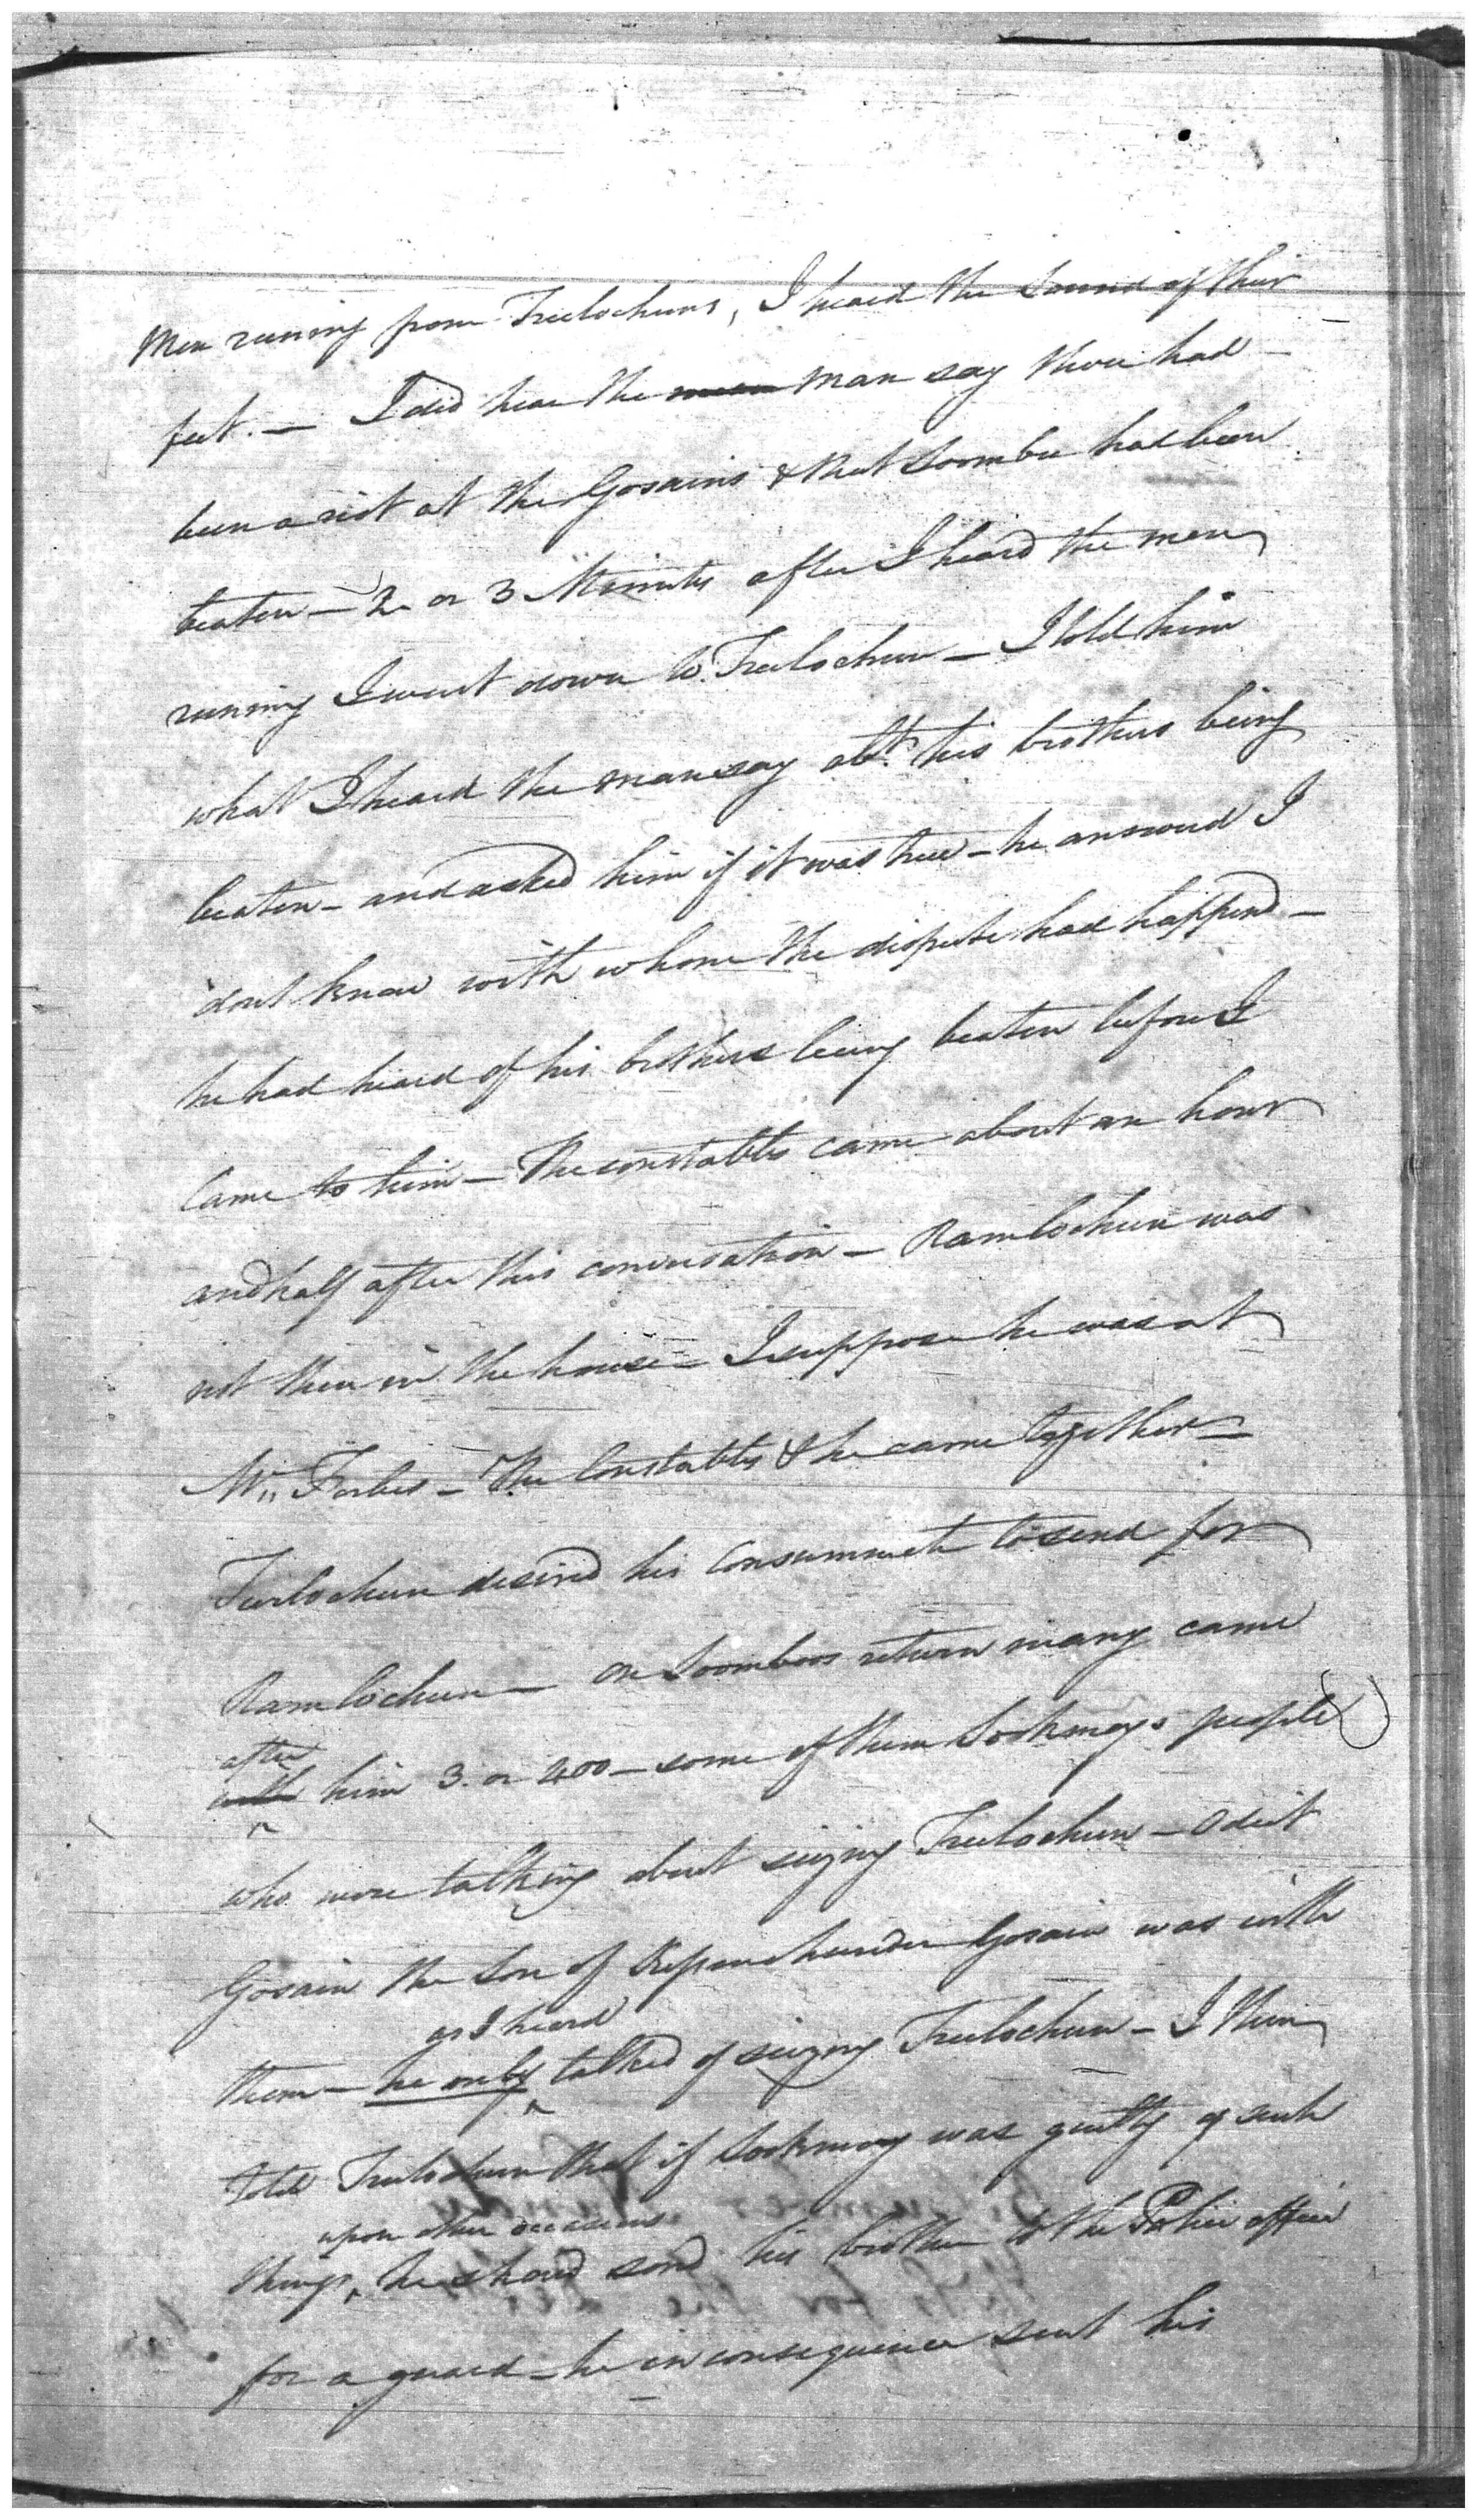 Men runing from Treelochuns, I heard the Sound of their
feet. — I did hear the man say there had —
been a riot at the Gosains & that Soomboo had been
beaten — 2 or 3 Minutes after I heard the men
running I went down to Treelochun — I told him
what I heard the man say abt. his brothers being
beaten — and asked him if it was true — he answerd I
dont know with whom the dispute had happend —
he had heard of his brothers being beaten before I
Came to him — The constables came about an hour
and half after this conversation — Ramlochun was
not then in the house — I suppose he was at
Mr. Forbes — The Constables & he came together —
Treelochun desired his Consummah to send for
Ramlochun — on Soomboos return many came
after
him 3. or 400 — some of them Sookmoys people
who were talking about seizing Treelochun — Odeit
Gosain the Son of Gosain was with
as I heard
them — he only talked of seizing Treelochun — I then
told Treelochun that if Sookmoy was guilty of such
upon other occasions
things, he shoud send his brother to the Police office
for a guard — he in consequence sent his